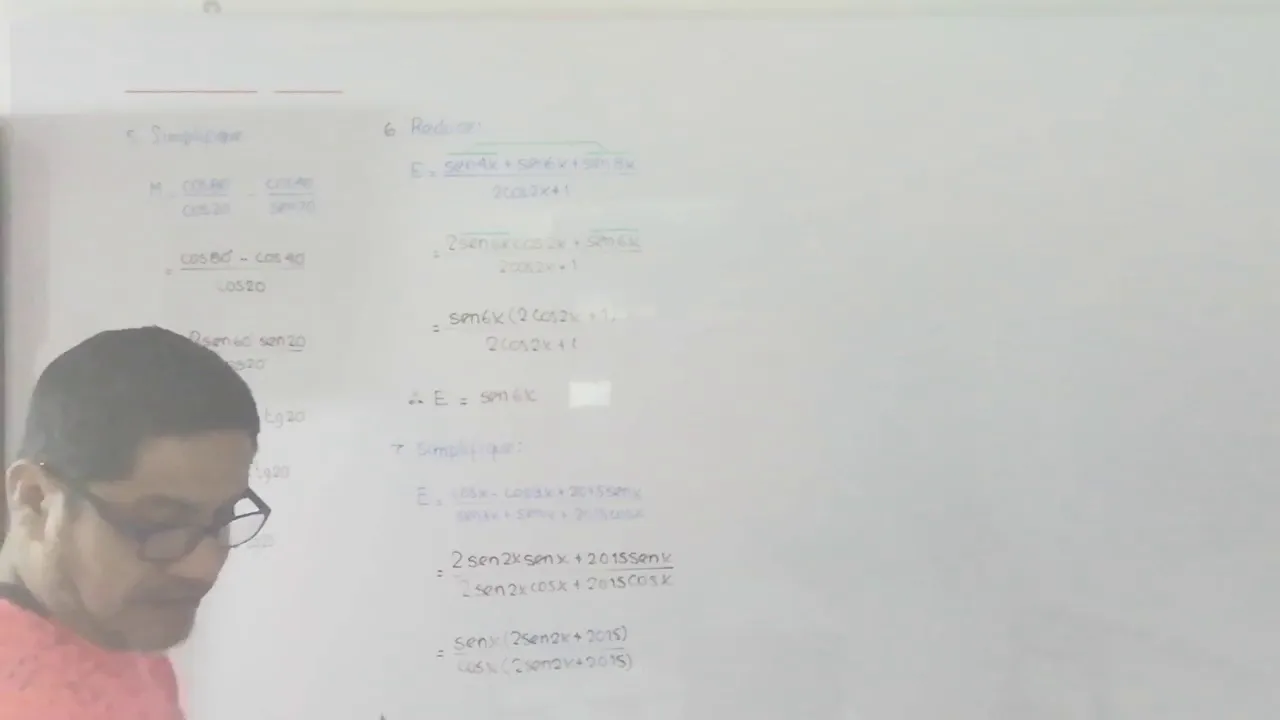 5 Simplifique
M = cos80/cos20 - cos40/sen70
= cos80 - cos40/cos20
2sen60 sen20/cos20
tg20
tg20
6 Reduce:
E = sen4x + sen6x + sen8x/2cos2x+1
= 2sen6x cos2x + sen6x/2cos2x+1
= sen6x(2cos2x + 1)/2cos2x+1
∴ E = sen6x
7 Simplifique:
E = cosx - cos3x + 2015senx/sen3x + senx + 2015cosx
= 2sen2x senx + 2015senx/2sen2x cosx + 2015cosx
= senx(2sen2x + 2015)/cosx(2sen2x+2015)